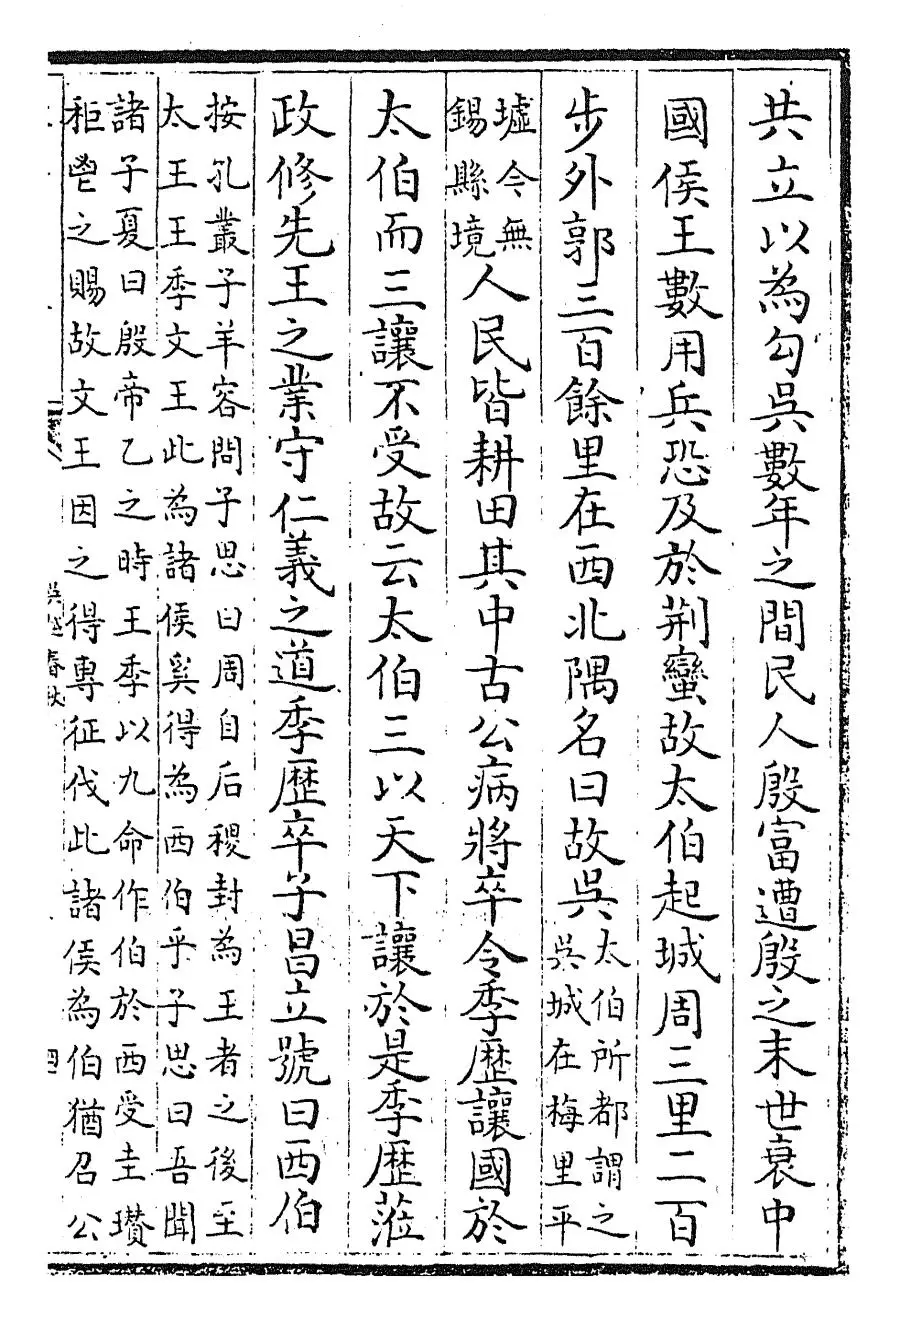 共立以為勾吳數年之間民人殷富遭殷之末世衰中
國侯王數用兵恐及於荆蠻故太伯起城周三里二百
步外郭三百餘里在西北隅名曰故吳
太伯所都謂之
吳城在梅里平
墟今無
錫縣境
人民皆耕田其中古公病將卒令季歴讓國於
太伯而三讓不受故云太伯三以天下讓於是季歴蒞
政修先王之業守仁義之道季歴卒子昌立號曰西伯
按孔叢子羊容問子思曰周自后稷封為王者之後至
太王王季文王此為諸侯奚得為西伯乎子思曰吾聞
諸子夏曰殷帝乙之時王季以九命作伯於西受圭瓚
秬鬯之賜故文王因之得專征伐此諸侯為伯猶召公
吳越春秋
四